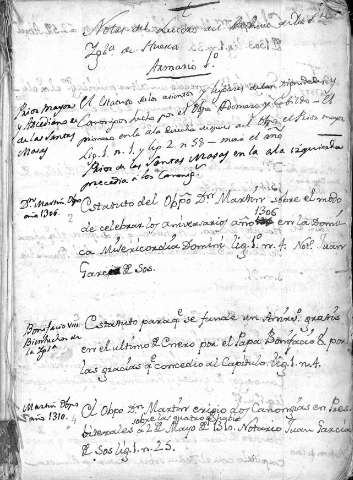 Notas del Lucero del Archivo de la S.
Ygl.ª de Huesca
Armario 1.º
Prior mayor
y Arcediano de
las Santas
Masas
El Estatuto de los asientos y lugares de las Dignidades y
Canonigos hecho por el Obpo Adomaro y Cabildo = El
primero en la ala derecha despues del Obpo, el Prior mayor
Lig. 1. n. 1. y lig. 2 n. 58 – murió el año
Prior de las Santas Masas en la ala izquierda
precedia a los Canong.s
D.n Martin Obpo
año 1306.
Estatuto del Obpō D.n Martin sobre el modo
de celebrar los aniversarios año 1306 en la Domi-
ca Misericordia Domini lig. 1.º n. 4. Not.º Juan
Garcez de Sos.
Bonifacio VIII
Bienhechor de
la Ygl.ª
Estatuto para q.e se funde un Anivers.º gratis
en el ultimo de Enero por el Papa Bonifacio 8. por
las gracias q.e concedio al Capitulo. lig. 1. n. 4.
Martin Obpo
año 1310.
El Obpo D.n Martin erigio dos Canongias en Pres-
biterales a 2 de Mayo de 1310. Notario Juan Garcia
sobre las quatro q.e habia
de Sos lig. 1. n. 25.